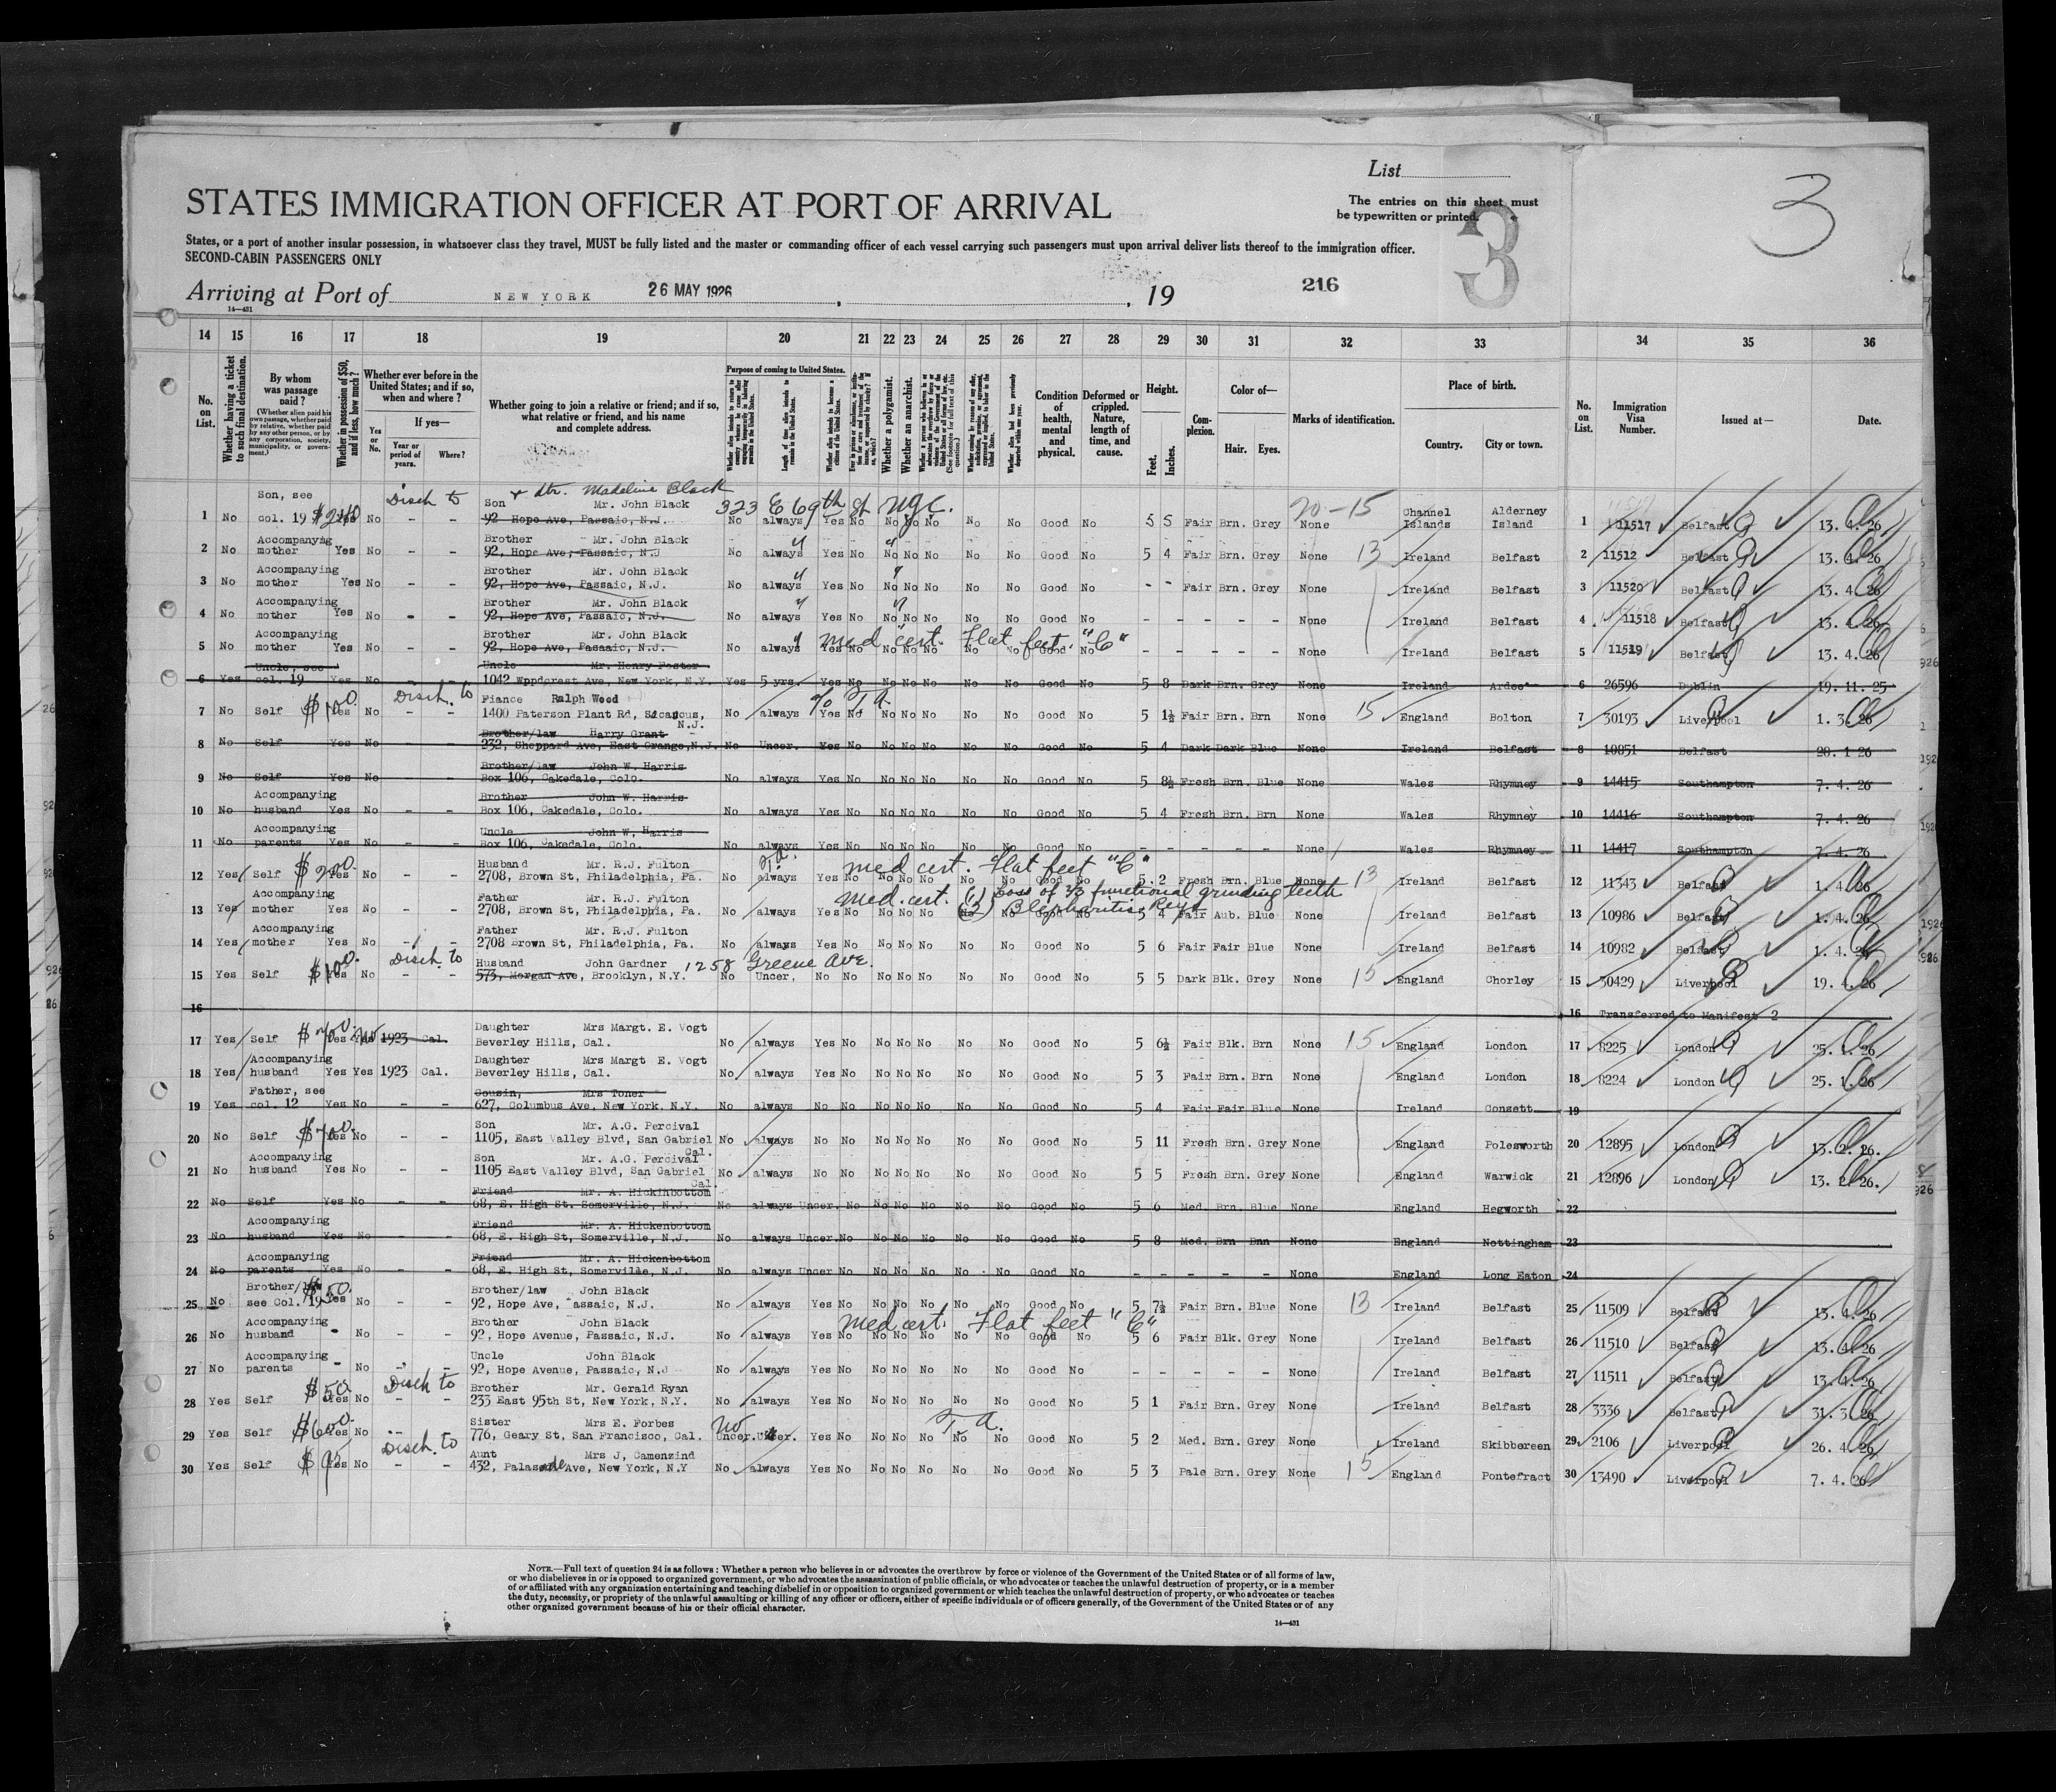 List
The entries on this sheet must
be typewritten or printed.
3
3
STATES IMMIGRATION OFFICER AT PORT OF ARRIVAL
States, or a port of another insular possession, in whatsoever class they travel, MUST be fully listed and the master or commanding officer of each vessel carrying such passengers must upon arrival deliver lists thereof to the immigration officer.
SECOND-CABIN PASSENGERS ONLY
Arriving at Port of NEW YORK 26 MAY 1926, , 19 216
14—431
14 15 16 17 18 19 20 21 22 23 24 25 26 27 28 29 30 31 32 33 34 35 36
No. on List.
Whether having a ticket to such final destination.
By whom was passage paid?
(Whether alien paid his own passage, whether paid by relative, whether paid by any other person, or by any corporation, society, municipality, or government.)
Whether in possession of $50, and if less, how much?
Whether ever before in the United States; and if so, when and where?
If yes—
Yes or No.
Year or period of years.
Where?
Whether going to join a relative or friend; and if so, what relative or friend, and his name and complete address.
Purpose of coming to United States.
Length of time alien intends to remain in the United States.
Whether alien intends to become a citizen of the United States.
Whether a polygamist.
Whether an anarchist.
Condition of health, mental and physical.
Deformed or crippled. Nature, length of time, and cause.
Height.
Feet. Inches.
Complexion.
Color of—
Hair. Eyes.
Marks of identification.
Place of birth.
Country. City or town.
No. on List.
Immigration Visa Number.
Issued at—
Date.
Disch to & dtr. Madeline Black
Son, see Son Mr. John Black 323 E 69th St NYC. 20-15 Channel Alderney
1 No col. 19 $240 Yes No - - 92 Hope Ave, Passaic, N.J. No always Yes No No No No No No Good No 5 5 Fair Brn. Grey None Islands Island 1 11517 Belfast 13. 4. 26
Accompanying Brother Mr. John Black
2 No mother Yes No - - 92, Hope Ave, Passaic, N.J No always Yes No No No No No No Good No 5 4 Fair Brn. Grey None 13 Ireland Belfast 2 11512 Belfast 13. 4. 26
Accompanying Brother Mr. John Black
3 No mother Yes No - - 92, Hope Ave, Passaic, N.J. No always Yes No No No No No No Good No - - Fair Brn. Grey None Ireland Belfast 3 11520 Belfast 13. 4. 26
Accompanying Brother Mr. John Black
4 No mother Yes No - - 92, Hope Ave, Passaic, N.J. No always Yes No No No No No No Good No - - - - - None Ireland Belfast 4 11518 Belfast 13. 4. 26
Accompanying Brother Mr. John Black med cert. Flat feet. "C"
5 No mother Yes No - - 92, Hope Ave, Passaic, N.J. No always Yes No No No No No No Good No - - - - - None Ireland Belfast 5 11519 Belfast 13. 4. 26
Uncle, see Uncle Mr. Henry Foster
6 Yes col. 19 Yes No - - 1042 Wppdcrest Ave, New York, N.Y. Yes 5 yrs. Yes No No No No No No Good No 5 8 Dark Brn. Grey None Ireland Ardee 6 26596 Dublin 19. 11. 25
Disch. to Fiance Ralph Wood T.A.
7 No Self $100. Yes No - - 1400 Paterson Plant Rd, Sicaucus, N.J. No always Yes No No No No No No Good No 5 1½ Fair Brn. Brn None 15 England Bolton 7 30193 Liverpool 1. 3. 26
Brother/law Harry Grant
8 No Self Yes No - 232, Sheppard Ave, East Orange, N.J. No Uncer. Yes No No No No No No Good No 5 4 Dark Dark Blue None Ireland Belfast 8 10851 Belfast 28. 1 26
Brother/law John W. Harris
9 No Self Yes No - Box 106, Oakedale, Colo. No always Yes No No No No No No Good No 5 8½ Fresh Brn. Blue None Wales Rhymney 9 14415 Southampton 7. 4. 26
Accompanying Brother John W. Harris
10 No husband Yes No - - Box 106, Oakedale, Colo. No always Yes No No No No No No Good No 5 4 Fresh Brn. Brn None Wales Rhymney 10 14416 Southampton 7. 4. 26
Accompanying Uncle John W, Harris
11 No parents Yes No - - Box 106, Oakedale, Colo. No always Yes No No No No No No Good No - - - - - None Wales Rhymney 11 14417 Southampton 7. 4. 26
Husband Mr. R.J. Fulton T.A. med cert. Flat feet "C"
12 Yes Self $200. Yes No - - 2708, Brown St, Philadelphia, Pa. No always Yes No No No No No No Good No 5 2 Fresh Brn. Blue None 13 Ireland Belfast 12 11343 Belfast 1. 4. 26
Accompanying Father Mr. R.J. Fulton med. cert. (1) Loss of 2/3 functional grinding teeth (2) Blepharitis
13 Yes mother Yes No - - 2708, Brown St, Philadelphia, Pa. No always Yes No No No No No No Good No 5 4 Fair Aub. Blue None Ireland Belfast 13 10986 Belfast 1. 4. 26
Accompanying Father Mr. R.J. Fulton
14 Yes mother Yes No - - 2708 Brown St, Philadelphia, Pa. No always Yes No No No No No No Good No 5 6 Fair Fair Blue None Ireland Belfast 14 10982 Belfast 1. 4. 26
Disch. to Husband John Gardner 1258 Greene Ave.
15 Yes Self $100. Yes No - - 573, Morgan Ave, Brooklyn, N.Y. No Uncer, No No No No No No No Good No 5 5 Dark Blk. Grey None 15 England Chorley 15 30429 Liverpool 19. 4. 26
16 16 Transferred to Manifest 2
Daughter Mrs Margt. E. Vogt
17 Yes Self $700. Yes Yes No 1923 Cal. Beverley Hills, Cal. No always Yes No No No No No No Good No 5 6½ Fair Blk. Brn None 15 England London 17 8225 London 25. 1. 26
Accompanying Daughter Mrs Margt E. Vogt
18 Yes husband Yes Yes 1923 Cal. Beverley Hills, Cal. No always Yes No No No No No No Good No 5 3 Fair Brn. Brn None England London 18 8224 London 25. 1. 26
Father, see Cousin, Mrs Toner
19 Yes col. 12 Yes No - - 627, Columbus Ave, New York, N.Y. No always No No No No No No No Good No 5 4 Fair Fair Blue None Ireland Consett 19
Son Mr. A.G. Percival
20 No Self $700. Yes No - - 1105, East Valley Blvd, San Gabriel Cal. No always No No No No No No No Good No 5 11 Fresh Brn. Grey None England Polesworth 20 12895 London 13. 2. 26.
Accompanying Son Mr. A.G. Percival
21 No husband Yes No - - 1105 East Valley Blvd, San Gabriel Cal. No always No No No No No No No Good No 5 5 Fresh Brn. Grey None England Warwick 21 12896 London 13. 2. 26.
Friend Mr. A. Hickinbottom
22 No Self Yes No - - 68, E. High St. Somerville, N.J. No always Uncer. No No No No No No Good No 5 6 Med. Brn. Blue None England Hegworth 22
Accompanying Friend Mr. A. Hickenbottom
23 No husband Yes No - - 68, E. High St, Somerville, N.J. No always Uncer. No No No No No No Good No 5 8 Med. Brn Bnn None England Nottingham 23
Accompanying Friend Mr. A. Hickenbottom
24 No parents Yes No - - 68, E. High St, Somerville, N.J. No always Uncer No No No No No No Good No - - - - - None England Long Eaton 24
Brother/law $50. Brother/law John Black
25 No see Col. 19 Yes No - - 92, Hope Ave, assaic, N.J. No always Yes No No No No No No Good No 5 7½ Fair Brn. Blue None 13 Ireland Belfast 25 11509 Belfast 13. 4. 26
Accompanying Brother John Black med cert. Flat feet "C"
26 No husband - No 92, Hope Avenue, Passaic, N.J. No always Yes No No No No No No Good No 5 6 Fair Blk. Grey None Ireland Belfast 26 11510 Belfast 13. 4. 26
Accompanying Uncle John Black
27 No parents - No - - 92, Hope Avenue, Passaic, N.J No always Yes No No No No No No Good No - - - - - None Ireland Belfast 27 11511 Belfast 13. 4. 26
Disch to Brother Mr. Gerald Ryan
28 Yes Self $50 Yes No - - 233 East 95th St, New York, N.Y. No always Yes No No No No No No Good No 5 1 Fair Brn. Grey None Ireland Belfast 28 3336 Belfast 31. 3. 26
Sister Mrs E. Forbes No T.A.
29 Yes Self $600. Yes No - - 776, Geary St, San Francisco, Cal. Uncer. Uncer. Yes No No No No No No Good No 5 2 Med. Brn. Grey None Ireland Skibbereen 29 2106 Liverpool 26. 4. 26
Disch. to Aunt Mrs J, Camenzind
30 Yes Self Yes No - - 432, Palasade Ave, New York, N.Y No always Yes No No No No No No Good No 5 3 Pale Brn. Grey None 15 England Pontefract 30 13490 Liverpool 7. 4. 26
NOTE.—Full text of question 24 is as follows: Whether a person who believes in or advocates the overthrow by force or violence of the Government of the United States or of all forms of law,
or who disbelieves in or is opposed to organized government, or who advocates the assassination of public officials, or who advocates or teaches the unlawful destruction of property, or is a member
of or affiliated with any organization entertaining and teaching disbelief in or opposition to organized government or which teaches the unlawful destruction of property, or who advocates or teaches
the duty, necessity, or propriety of the unlawful assaulting or killing of any officer or officers, either of specific individuals or of officers generally, of the Government of the United States or of any
other organized government because of his or their official character.
14—431